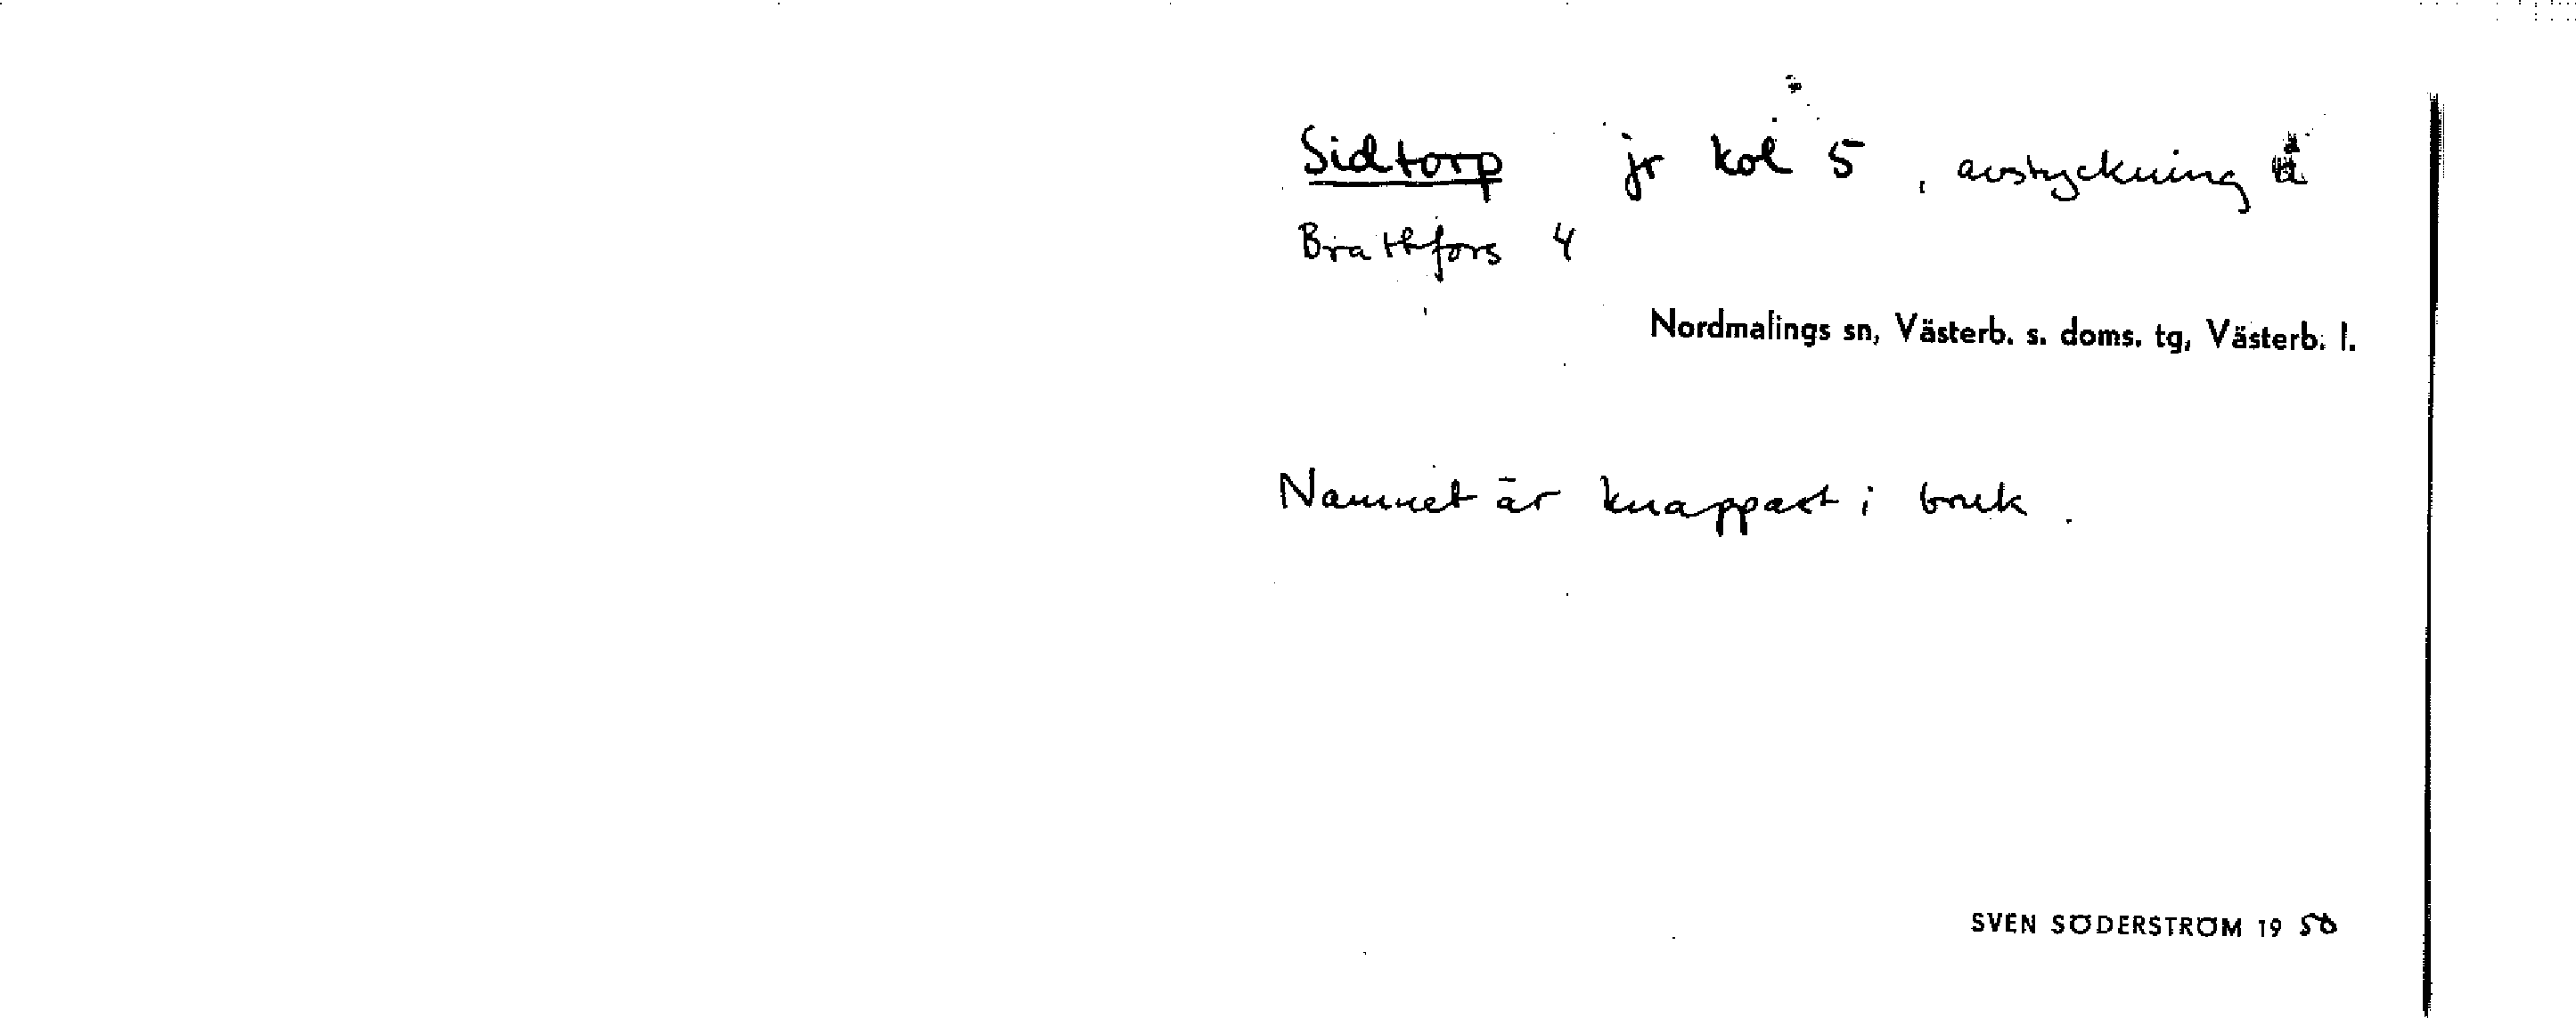 Sidtorp jr kol 5, avstyckning å
Brattfors 4
Nordmalings sn, Västerb. s. doms. tg, Västerb. l.
Namnet är knappast i bruk.
SVEN SÖDERSTRÖM 1950